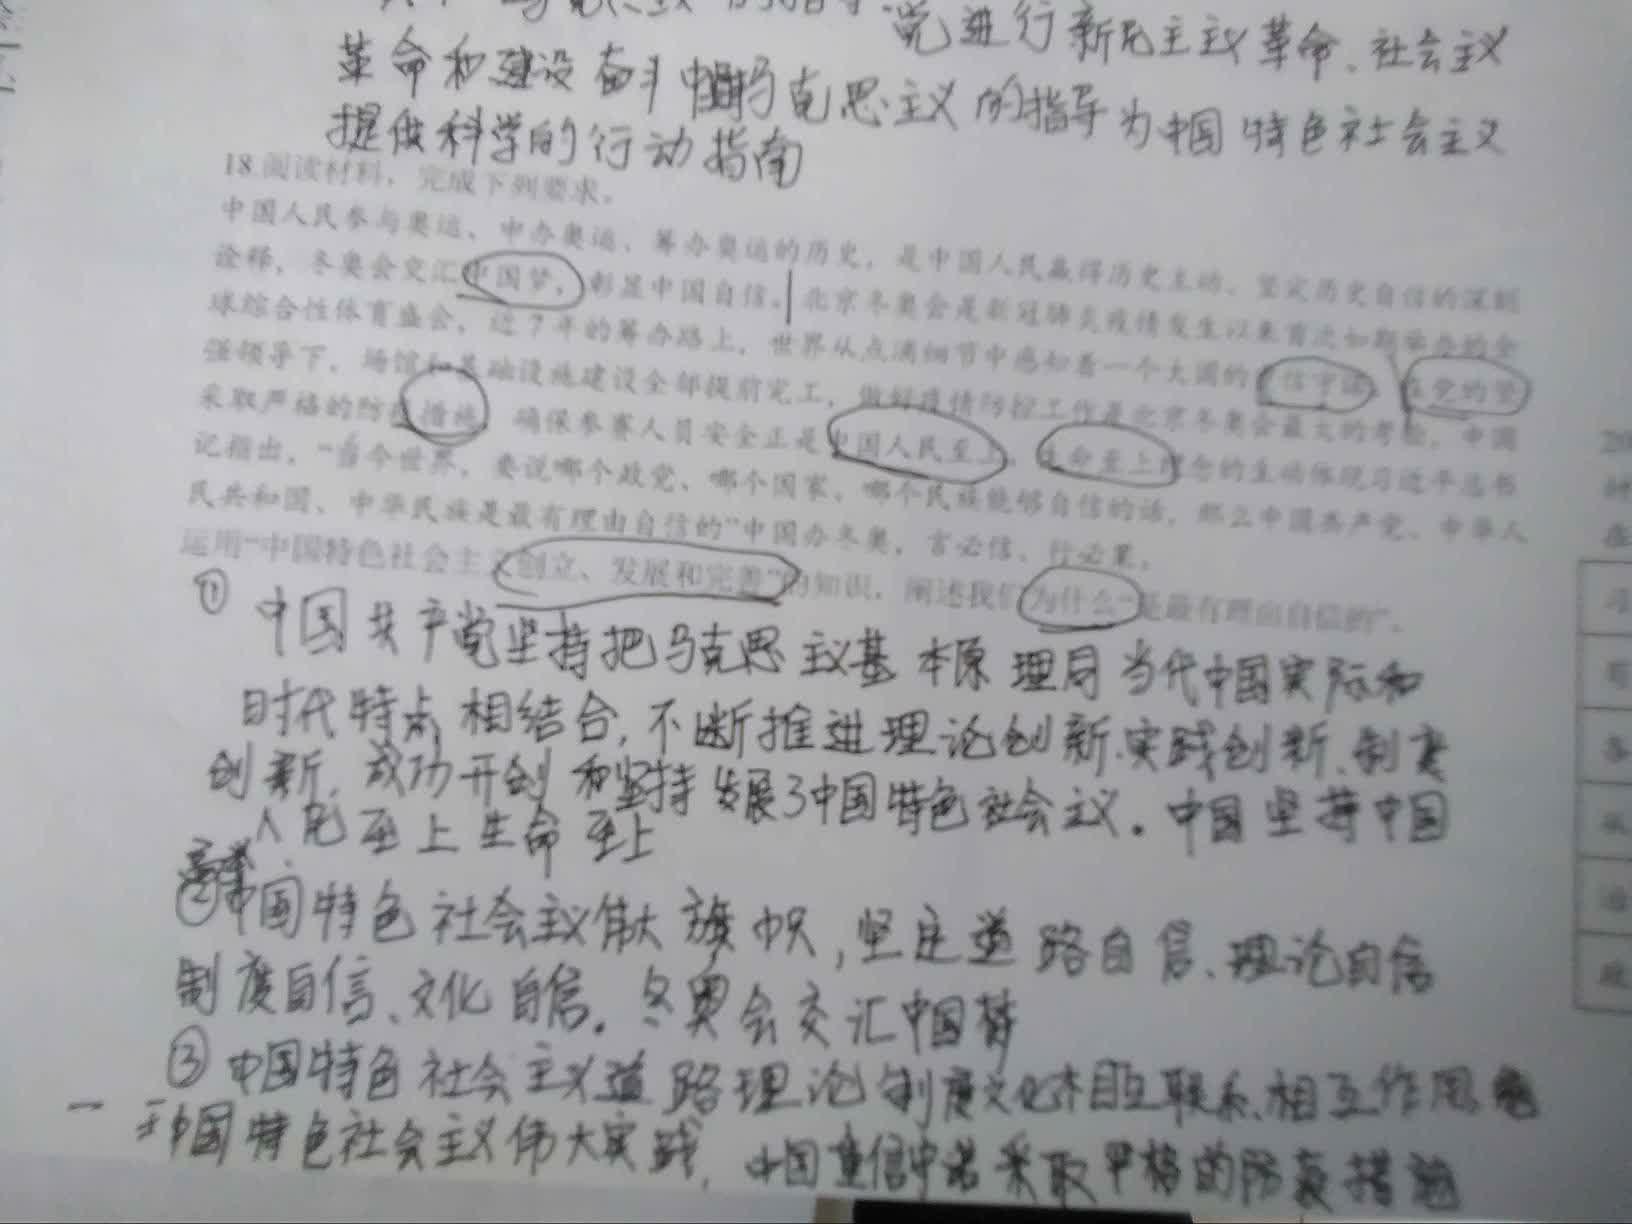 党进行新民主主义革命、社会主义
革命和建设奋斗 马克思主义的指导为中国特色社会主义
提供科学的行动指南
18.阅读材料，完成下列要求。
中国人民参与奥运、申办奥运、筹办奥运的历史，是中国人民赢得历史主动、坚定历史自信的深刻
诠释，冬奥会交汇中国梦，彰显中国自信。北京冬奥会是新冠肺炎疫情发生以来首次如期举办的全
球综合性体育盛会，近7年的筹办路上，世界从点滴细节中感知着一个大国的重信守诺。在党的坚
强领导下，场馆和基础设施建设全部提前完工，做好疫情防控工作是北京冬奥会最大的考验，中国
采取严格的防疫措施，确保参赛人员安全正是中国人民至上、生命至上理念的生动体现习近平总书
记指出，“当今世界，要说哪个政党、哪个国家、哪个民族能够自信的话，那么中国共产党、中华人
民共和国、中华民族是最有理由自信的”中国办冬奥，言必信、行必果。
运用“中国特色社会主义创立、发展和完善”的知识，阐述我们为什么“是最有理由自信的”。
① 中国共产党坚持把马克思主义基本原理同当代中国实际和
时代特点相结合,不断推进理论创新、实践创新、制度
创新,成功开创和坚持发展了中国特色社会主义。中国坚持中国
人民至上生命至上
高举
②中国特色社会主义伟大旗帜,坚定道路自信、理论自信
制度自信、文化自信。冬奥会交汇中国梦
③中国特色社会主义道路理论制度文化相互联系、相互作用
一 于中国特色社会主义伟大实践,中国重信守诺采取严格的防疫措施